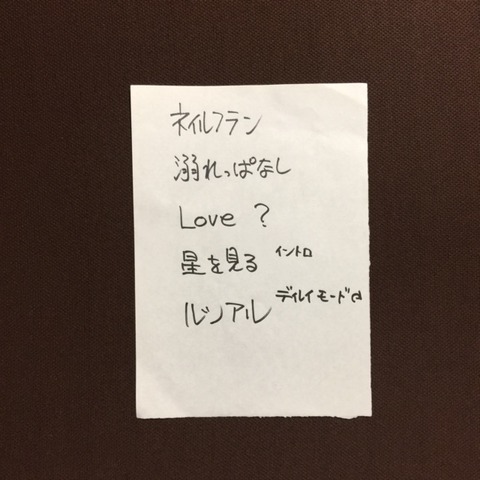 ネイルフラン
溺れっぱなし
Love ?
星を見る イントロ
ルジアル ディレイモードd